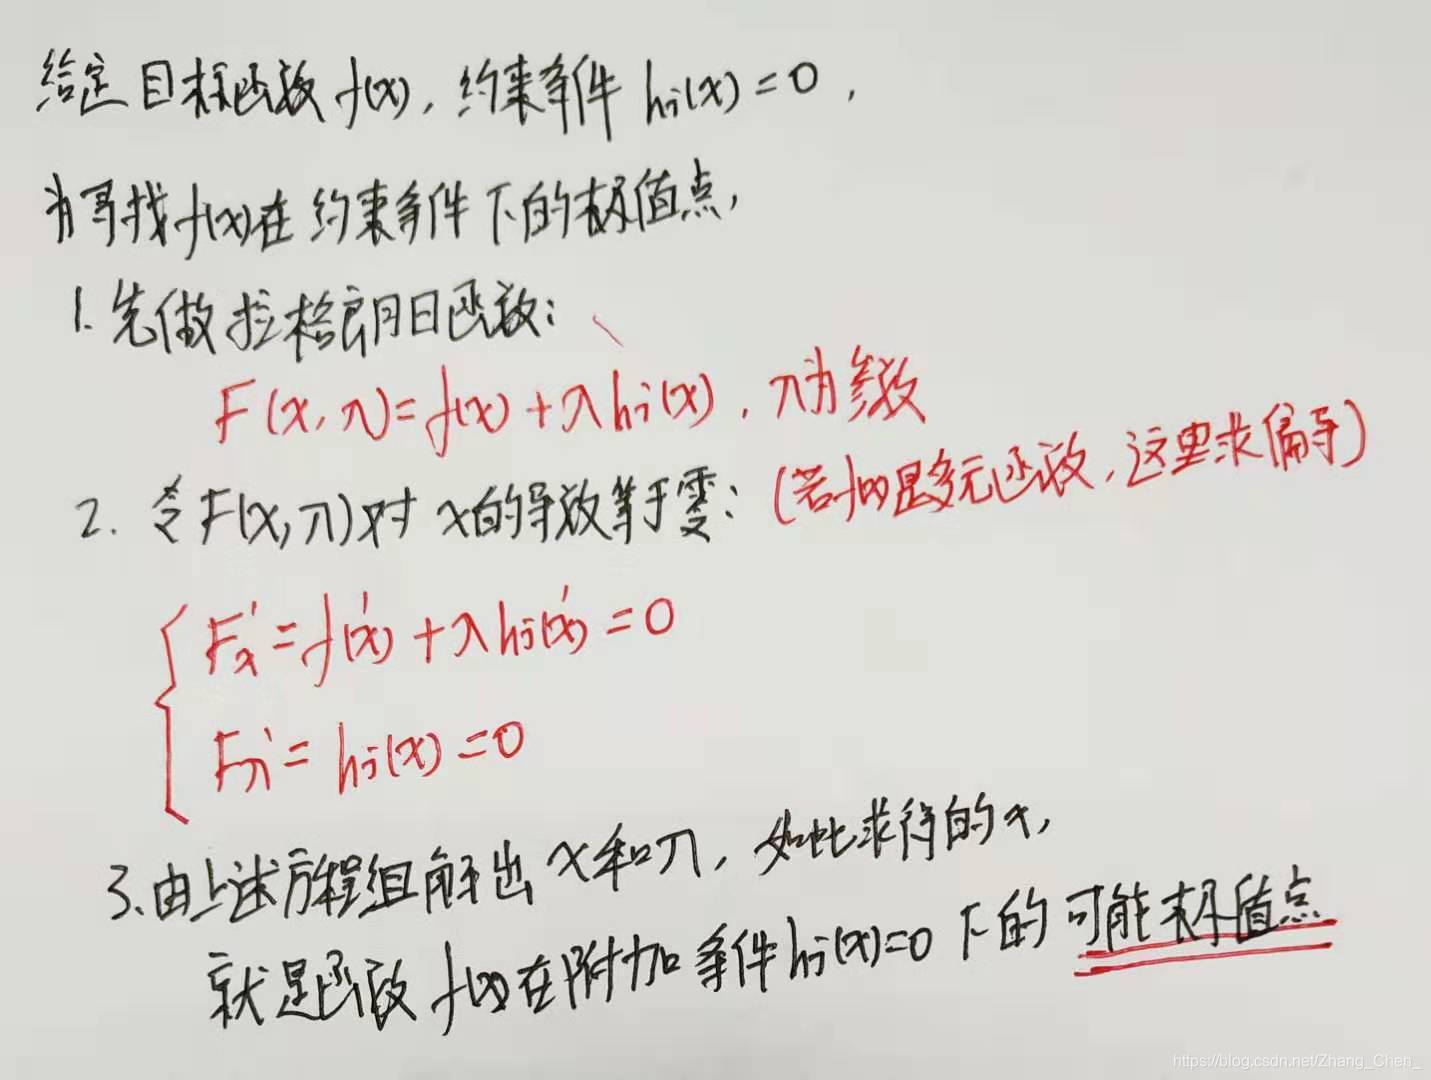 给定目标函数 f(x), 约束条件 hj(x) = 0 ,
为寻找f(x)在约束条件下的极值点,
1. 先做拉格朗日函数:
F(x, λ) = f(x) + λhj(x), λ为参数
2. 令F(x,λ)对x的导数等于零: (若f(x)是多元函数,这里求偏导)
Fx' = f(x)' + λhj(x)' = 0
Fλ' = hj(x) = 0
3. 由上述方程组解出x和λ, 如此求得的x,
就是函数f(x)在附加条件hj(x)=0下的可能极值点
https://blog.csdn.net/Zhang_Chen_